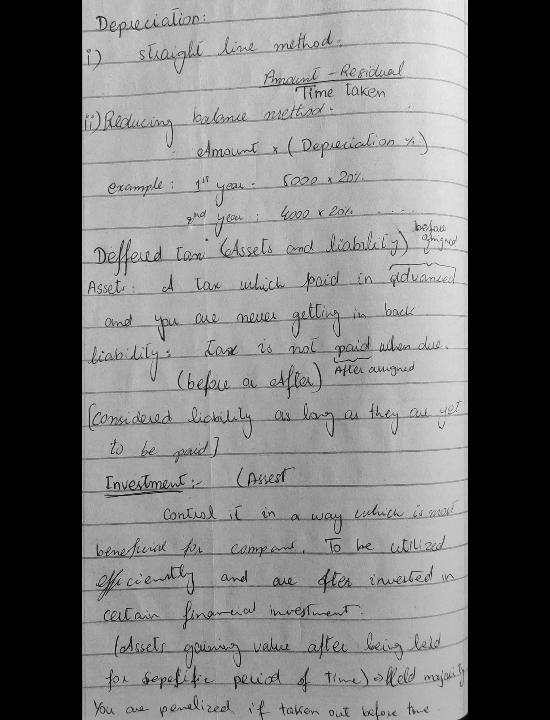 Depreciation:
i) straight line method.
Amount - Residual
Time taken
ii) Reducing balance method.
Amount x (Depreciation %)
example: 1st year: 5000 x 20%
2nd year: 4000 x 20% .....
Deffered tax (Assets and liability) before assigned
Asset: A tax which paid in advanced
and you are never getting in back
liability: tax is not paid when due.
(before or after) After assigned
[considered liability as long as they are yet
to be paid]
Investment:- (Assest
Control it in a way which is most
beneficial for company. To be utilized
efficiently and are after invested in
certain financial investment.
(Assets gaining value after being held
for sepefific period of time) Held majority
You are penelized if taken out before the